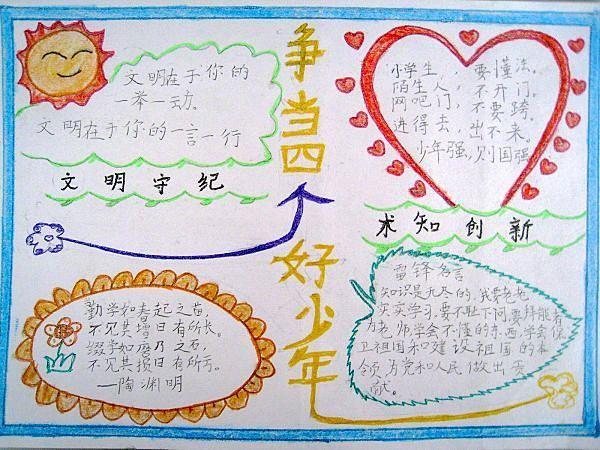 文明在于你的
一举一动.
文明在于你的一言一行
文明守纪
争当四
好少年
小学生,,要懂法.
陌生人,不开门.
网吧门,不要跨.
进得去,出不来.
少年强,则国强
术知创新
勤学如春起之苗,
不见其增日有所长.
辍学如磨刀之石,
不见其损日有所亏.
—陶渊明
雷锋名言
知识是无尽的,我要老老
实实学习,要不耻下问,要拜能者
为老师学会不懂的东西,学会保
卫祖国和建设祖国的本
领,为党和人民做出贡
献.